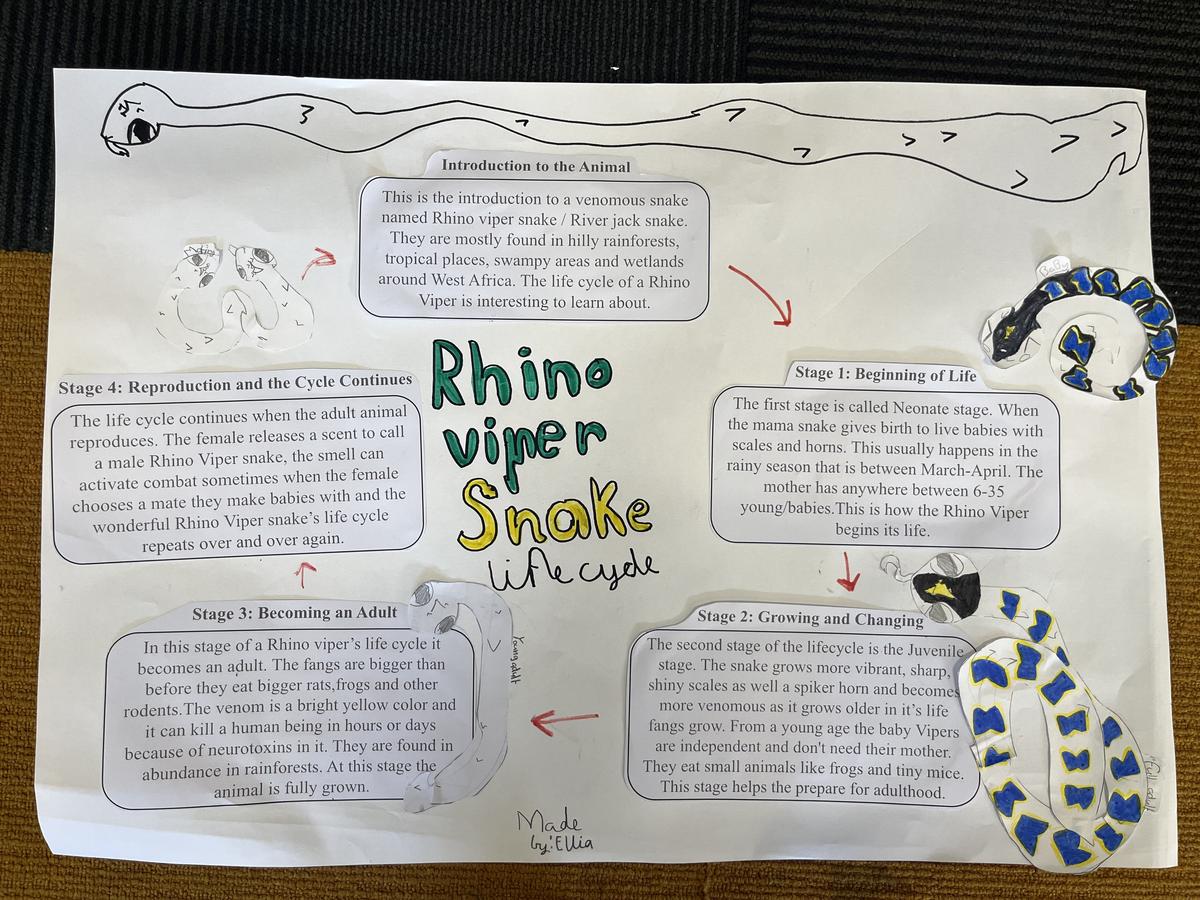 Introduction to the Animal
This is the introduction to a venomous snake
named Rhino viper snake / River jack snake.
They are mostly found in hilly rainforests,
tropical places, swampy areas and wetlands
around West Africa. The life cycle of a Rhino
Viper is interesting to learn about.
Rhino
viper
Snake
life cycle
BaBy
Stage 1: Beginning of Life
The first stage is called Neonate stage. When
the mama snake gives birth to live babies with
scales and horns. This usually happens in the
rainy season that is between March-April. The
mother has anywhere between 6-35
young/babies.This is how the Rhino Viper
begins its life.
Stage 2: Growing and Changing
The second stage of the lifecycle is the Juvenile
stage. The snake grows more vibrant, sharp,
shiny scales as well a spiker horn and becomes
more venomous as it grows older in it's life
fangs grow. From a young age the baby Vipers
are independent and don't need their mother.
They eat small animals like frogs and tiny mice.
This stage helps the prepare for adulthood.
Stage 3: Becoming an Adult
In this stage of a Rhino viper's life cycle it
becomes an adult. The fangs are bigger than
before they eat bigger rats,frogs and other
rodents.The venom is a bright yellow color and
it can kill a human being in hours or days
because of neurotoxins in it. They are found in
abundance in rainforests. At this stage the
animal is fully grown.
Stage 4: Reproduction and the Cycle Continues
The life cycle continues when the adult animal
reproduces. The female releases a scent to call
a male Rhino Viper snake, the smell can
activate combat sometimes when the female
chooses a mate they make babies with and the
wonderful Rhino Viper snake's life cycle
repeats over and over again.
Made
by:Ellia